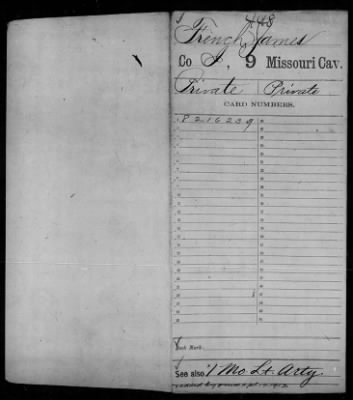 448
French, James
Co , 9 Missouri Cav.
Private Private
CARD NUMBERS.
8216239
Book Mark:
See also 1 Mo Lt. Arty.